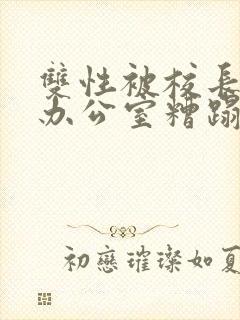 雙性被校長
办公室糟蹋
初戀璀璨如夏